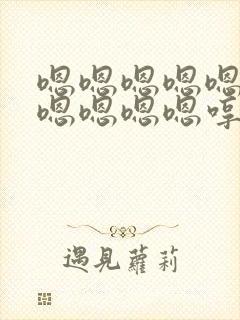 嗯嗯嗯嗯嗯
嗯嗯嗯嗯哼
遇見蘿莉